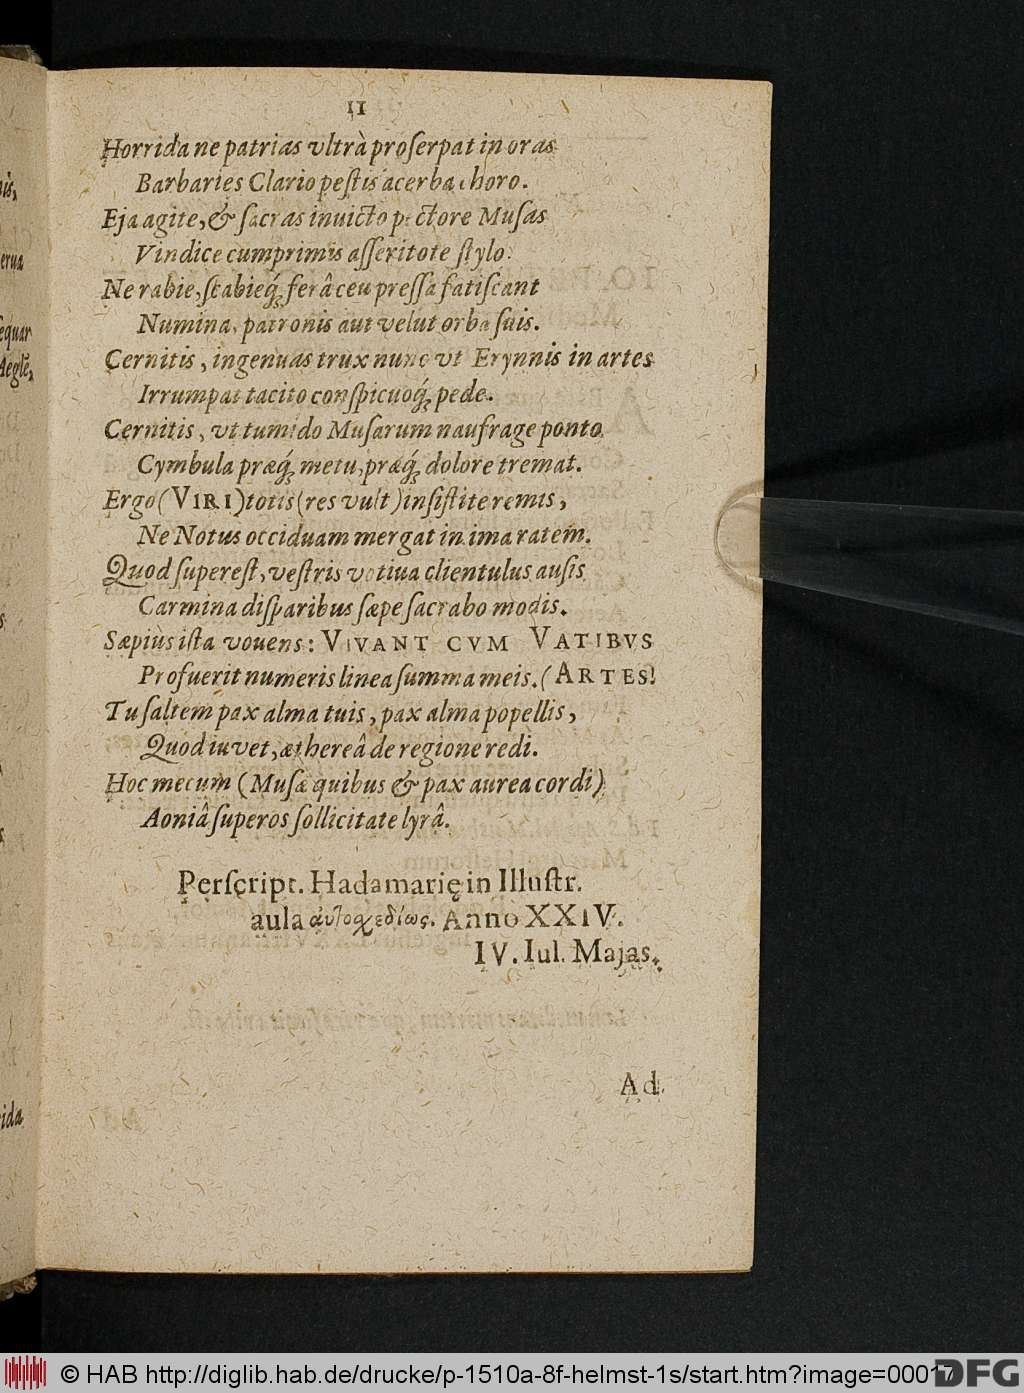 11
Horrida ne patrias vltrà proſerpat in oras
Barbaries Clario peſtis acerba choro.
Eja agite, & ſacras invicto pectore Muſas
Vindice cumprimis aſſeritote ſtylo:
Ne rabie, ſcabieq́; ferâ ceu preſſa fatiſcant
Numina, patronis aut velut orba ſuis.
Cernitis, ingenuas trux nunc vt Erynnis in artes
Irrumpat tacito conſpicuoq́; pede.
Cernitis, vt tumido Muſarum naufrage ponto
Cymbula præq́; metu, præq́; dolore tremat.
Ergo (VIRI) totis (res vult) inſiſtite remis,
Ne Notus occiduam mergat in ima ratem.
Quod ſupereſt, veſtris votiua clientulus auſis
Carmina diſparibus ſæpe ſacrabo modis.
Sæpiùs iſta vouens: VIVANT CVM VATIBVS
Profuerit numeris linea ſumma meis. (ARTES!
Tu ſaltem pax alma tuis, pax alma popellis,
Quod iuvet, æthereâ de regione redi.
Hoc mecum (Muſæ quibus & pax aurea cordi)
Aoniâ ſuperos ſollicitate lyrâ.
Perſcript. Hadamarię in Illuſtr.
aula ἀυτοχεδίως. Anno XXIV.
IV. Iul. Majas.
Ad
nis,
erua
ſequar
Aeglē,
s
s
rida
© HAB http://diglib.hab.de/drucke/p-1510a-8f-helmst-1s/start.htm?image=00017
DFG